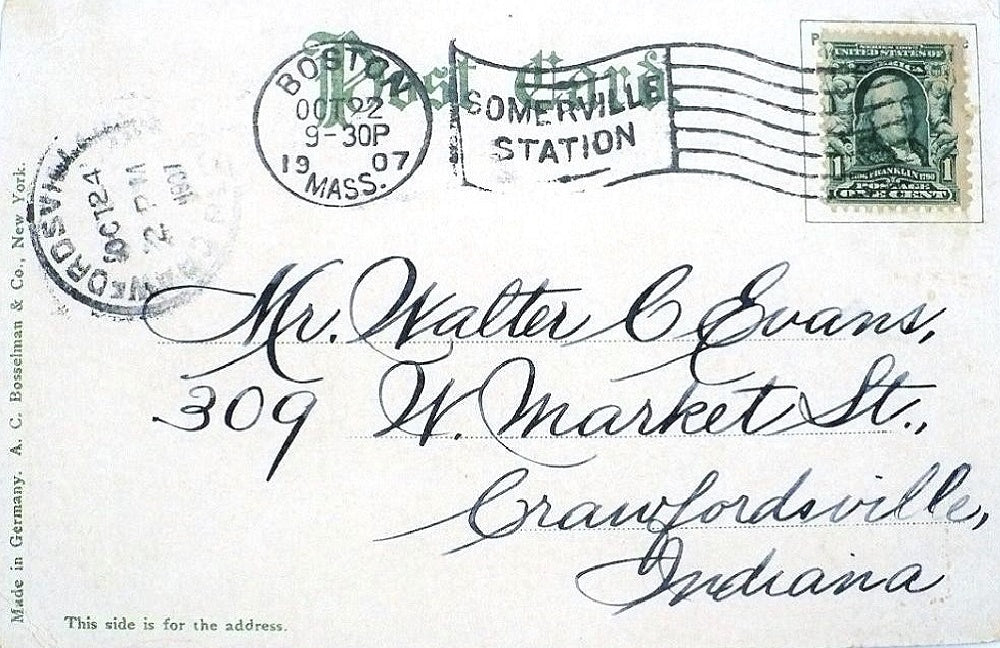 Post Card
BOSTON
OCT 22
9-30P
1907
MASS.
SOMERVILLE
STATION
SERIES 1902
UNITED STATES OF
AMERICA
1 1
FRANKLIN 1790
POSTAGE
ONE CENT
OCT 24
2 PM
1907
Mr. Walter C Evans,
309 W. Market St.,
Crawfordsville,
Indiana
Made in Germany. A. C. Bosselman & Co., New York.
This side is for the address.